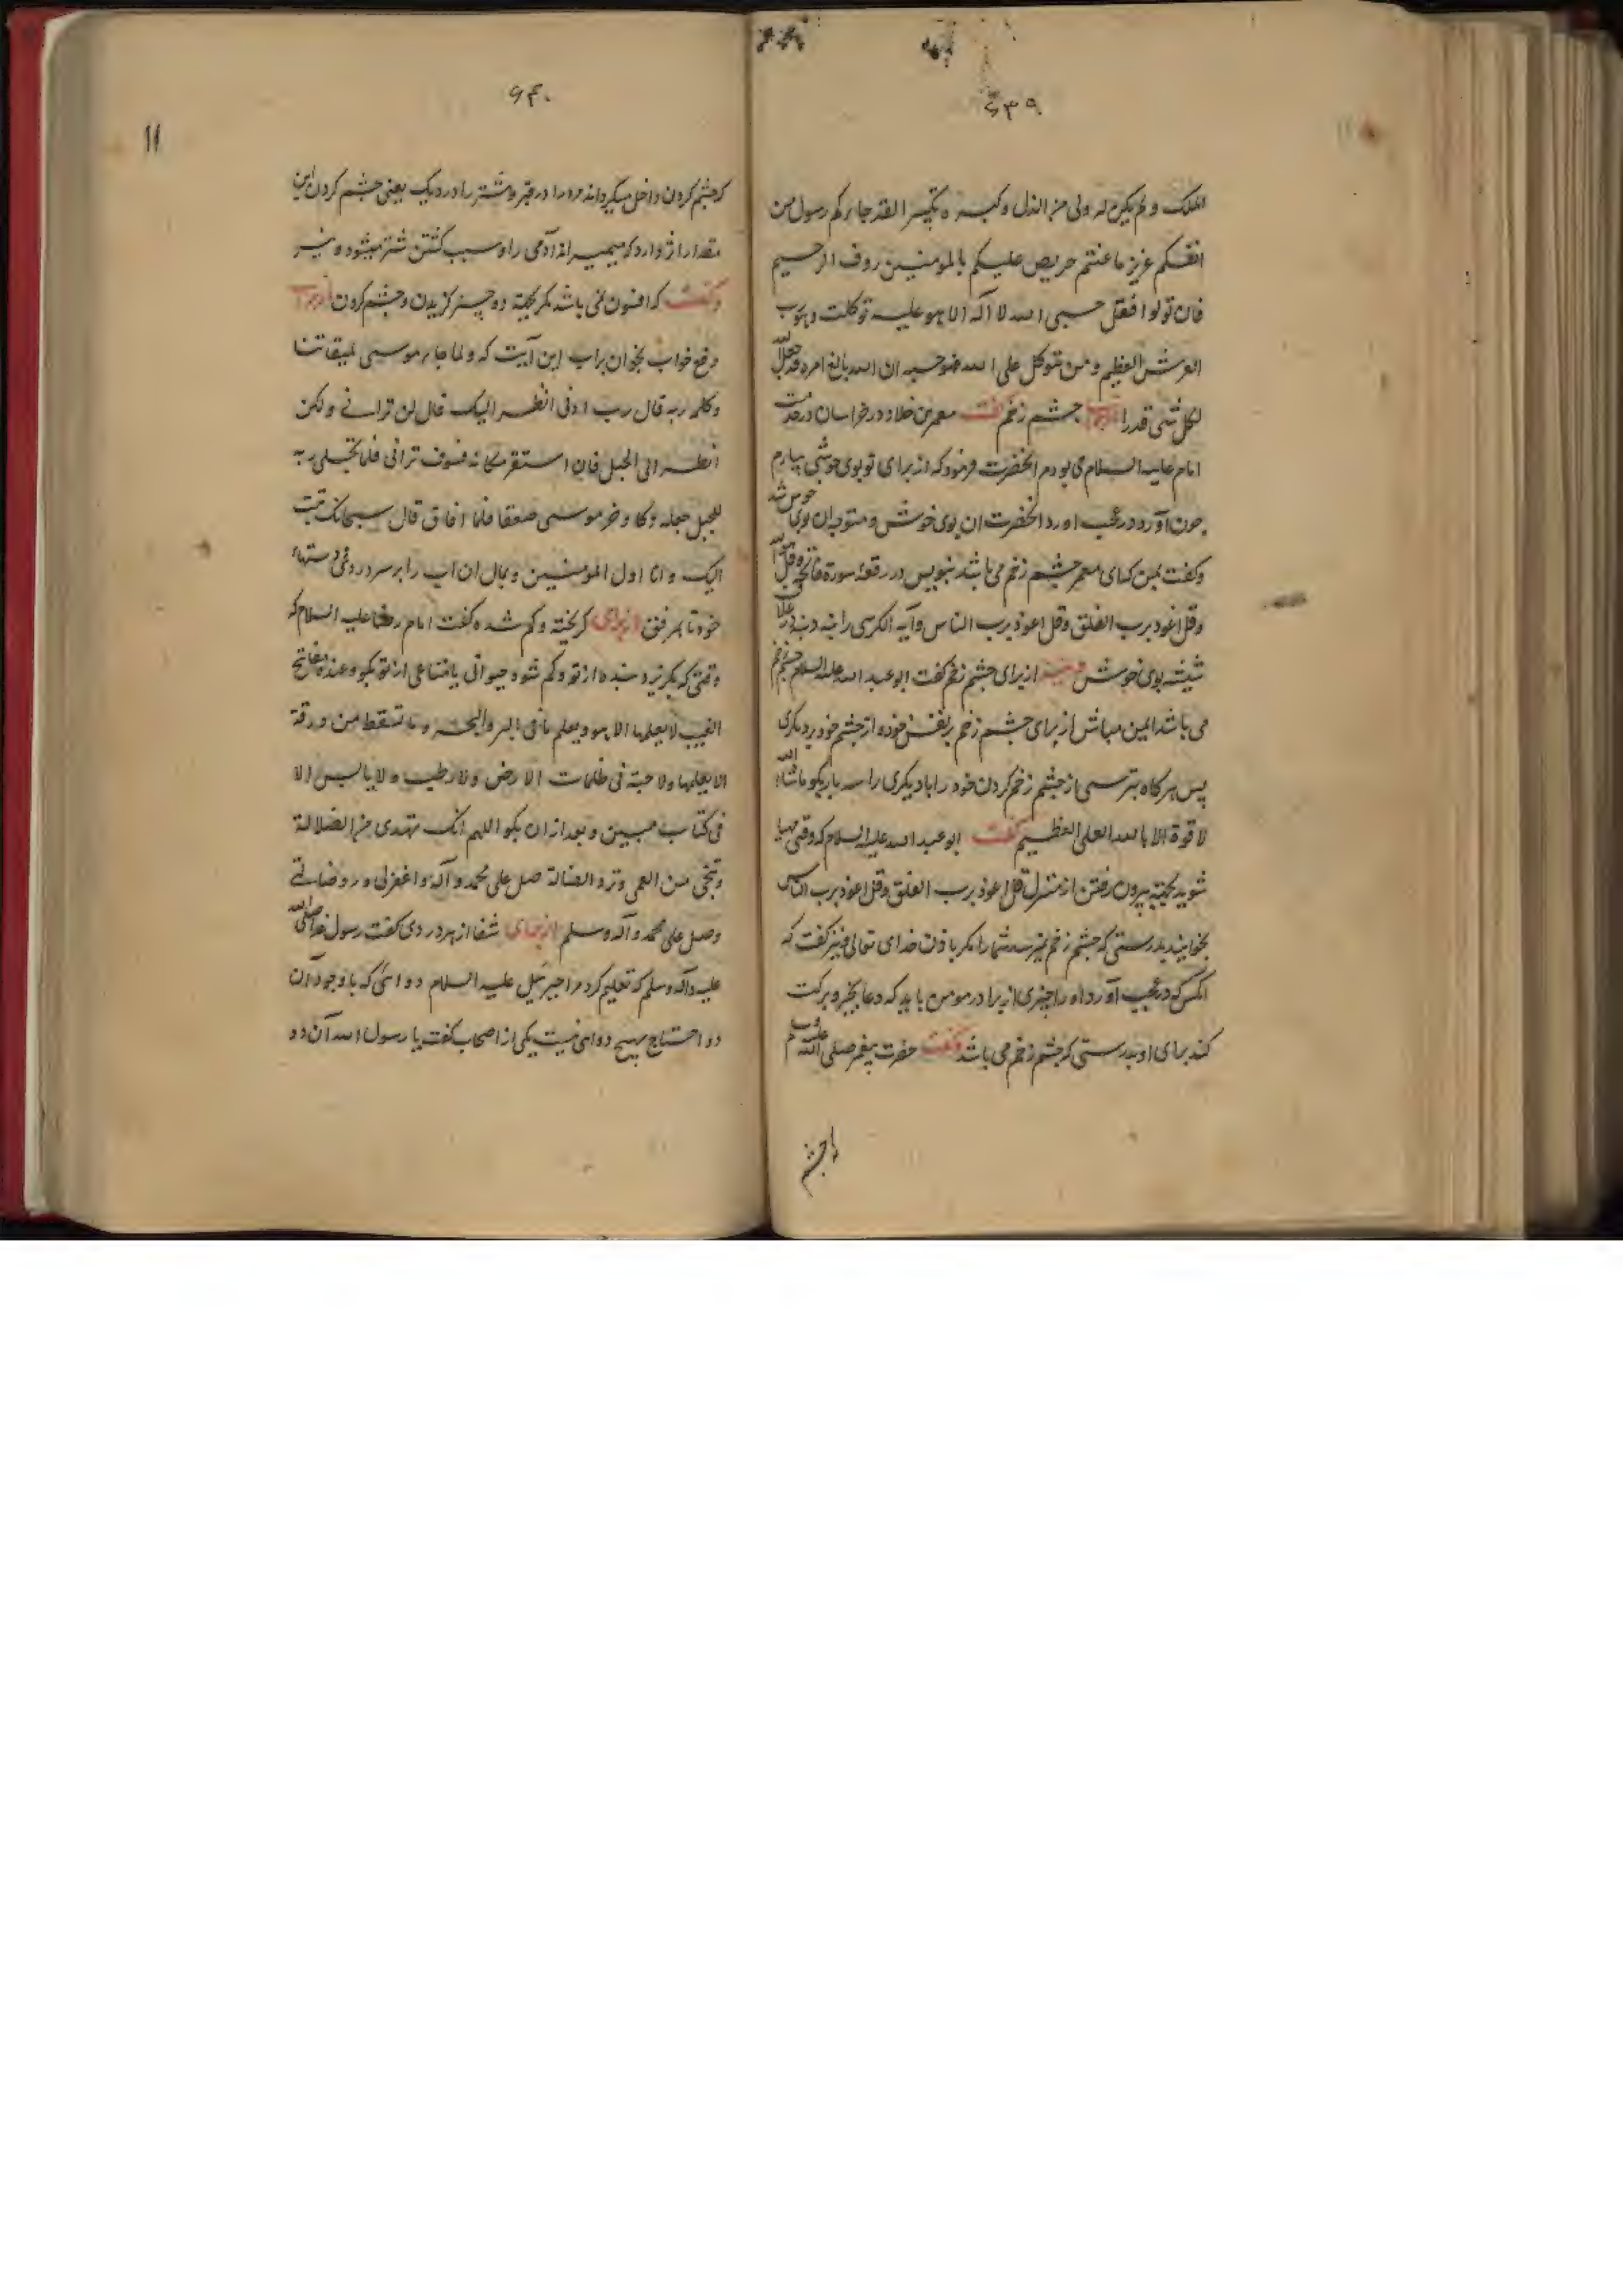 ۶۳۹
الملک و لم یکن له ولی من الذل و کبره تکبیرا لقد جاءکم رسول من
انفسکم عزیز ما عنتم حریص علیکم بالمومنین روف الرحیم
فان تولوا فقل حسبی الله لا آله الا هو علیه توکلت و هو رب
العرش العظیم و من یتوکل علی الله فهو حسبه ان الله بالغ امره قد جعل الله
لکل شی قدرا از برای چشم زخم گفت معمر بن خلاد در خراسان در خدمت
امام علیه السلام می بودم آنحضرت فرمود که از برای تو بوی خوشی بیارم
چون آورد در عجب آورد آنحضرت ان بوی خوش و متوجه ان بوی خوش شد
و گفت بمن که ای معمر چشم زخم می باشد بنویس در رقعه سوره فاتحه و قل هو الله
و قل اعوذ برب الفلق و قل اعوذ برب الناس و آیة الکرسی را بنه در غلاف
شیشه بوی خوش از برای چشم زخم گفت ابو عبد الله علیه السلام چشم زخم
می باشد ایمن مباش از برای چشم زخم بر نفس خود و از چشم خود بر دیگری
پس هر گاه بترسی از چشم زخم کردن خود را یا دیگری را سه بار بگو ما شاء الله
لا قوة الا بالله العلی العظیم گفت ابو عبد الله علیه السلام که وقتی مهیا
شوید بجهته بیرون رفتن از منزل قل اعوذ برب الفلق و قل اعوذ برب الناس
بخوانید بدرستی که چشم زخم نمیرسد شما را مگر باذن خدای تعالی و نیز گفت که
انکس که در عجب آورد او را چیزی از برادر مومن باید که دعا بخیر و برکت
کند برای او بدرستی که چشم زخم می باشد و گفت حضرت پیغمبر صلی الله علیه و سلم
چشم
۶۴۰
۱۱
که چشم کردن داخل میگرداند مرد را در قبر و شتر را در دیگ یعنی چشم کردن این
مقدار اثر دارد که میمیراند آدمی را و سبب کشتن شتر میشود و نیز
و گفت که افسون نمی باشد مگر بجهته دو چیز گزیدن و چشم کردن از برای
رفع خواب بخوان بر اب این آیت که و لما جاء موسی لمیقاتنا
و کلمه ربه قال رب ارنی انظر الیک قال لن ترانی و لکن
انظر الی الجبل فان استقر مکانه فسوف ترانی فلما تجلی ربه
للجبل جعله دکا و خر موسی صعقا فلما افاق قال سبحانک تبت
الیک و انا اول المومنین و بمال ان اب را بر سر و روی و دستهاء
خود تا بمرفق از برای گریخته و گم شده گفت امام رضا علیه السلام که
وقتی که بگریزد بنده از تو و گم شود حیوانی یا متاعی از تو بگو و عنده مفاتح
الغیب لا یعلمها الا هو و یعلم ما فی البر و البحر و ما تسقط من ورقة
الا یعلمها و لا حبة فی ظلمات الارض و لا رطب و لا یابس الا
فی کتاب مبین و بعد از ان بگو اللهم انک تهدی من الضلالة
و تنجی من العمی و ترد الضالة صل علی محمد و آله و اغفر لی و رد ضالتی
و صل علی محمد و آله و سلم از برای شفا از هر دردی گفت رسول خدا صلی الله
علیه و آله و سلم که تعلیم کرد مرا جبرئیل علیه السلام دوائی که با وجود آن
دوا احتیاج بهیچ دوای نیست یکی از اصحاب گفت یا رسول الله آن دو